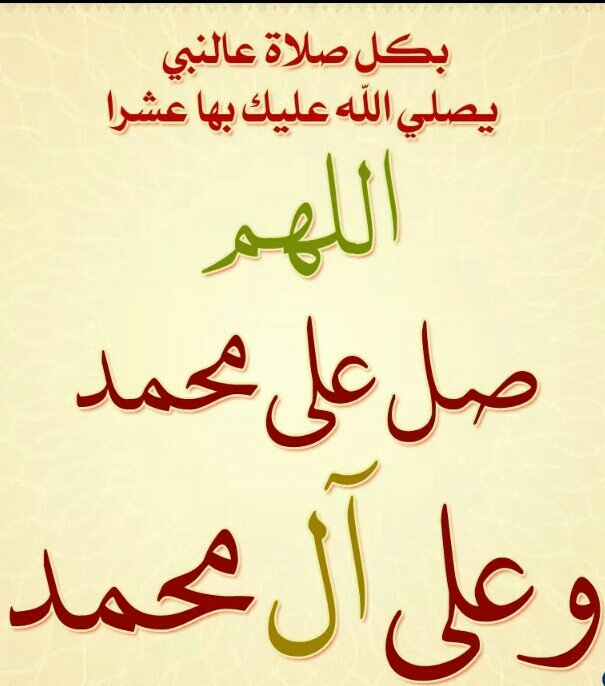 بكل صلاة عالنبي
يصلي الله عليك بها عشرا
اللهم
صل على محمد
وعلى آل محمد